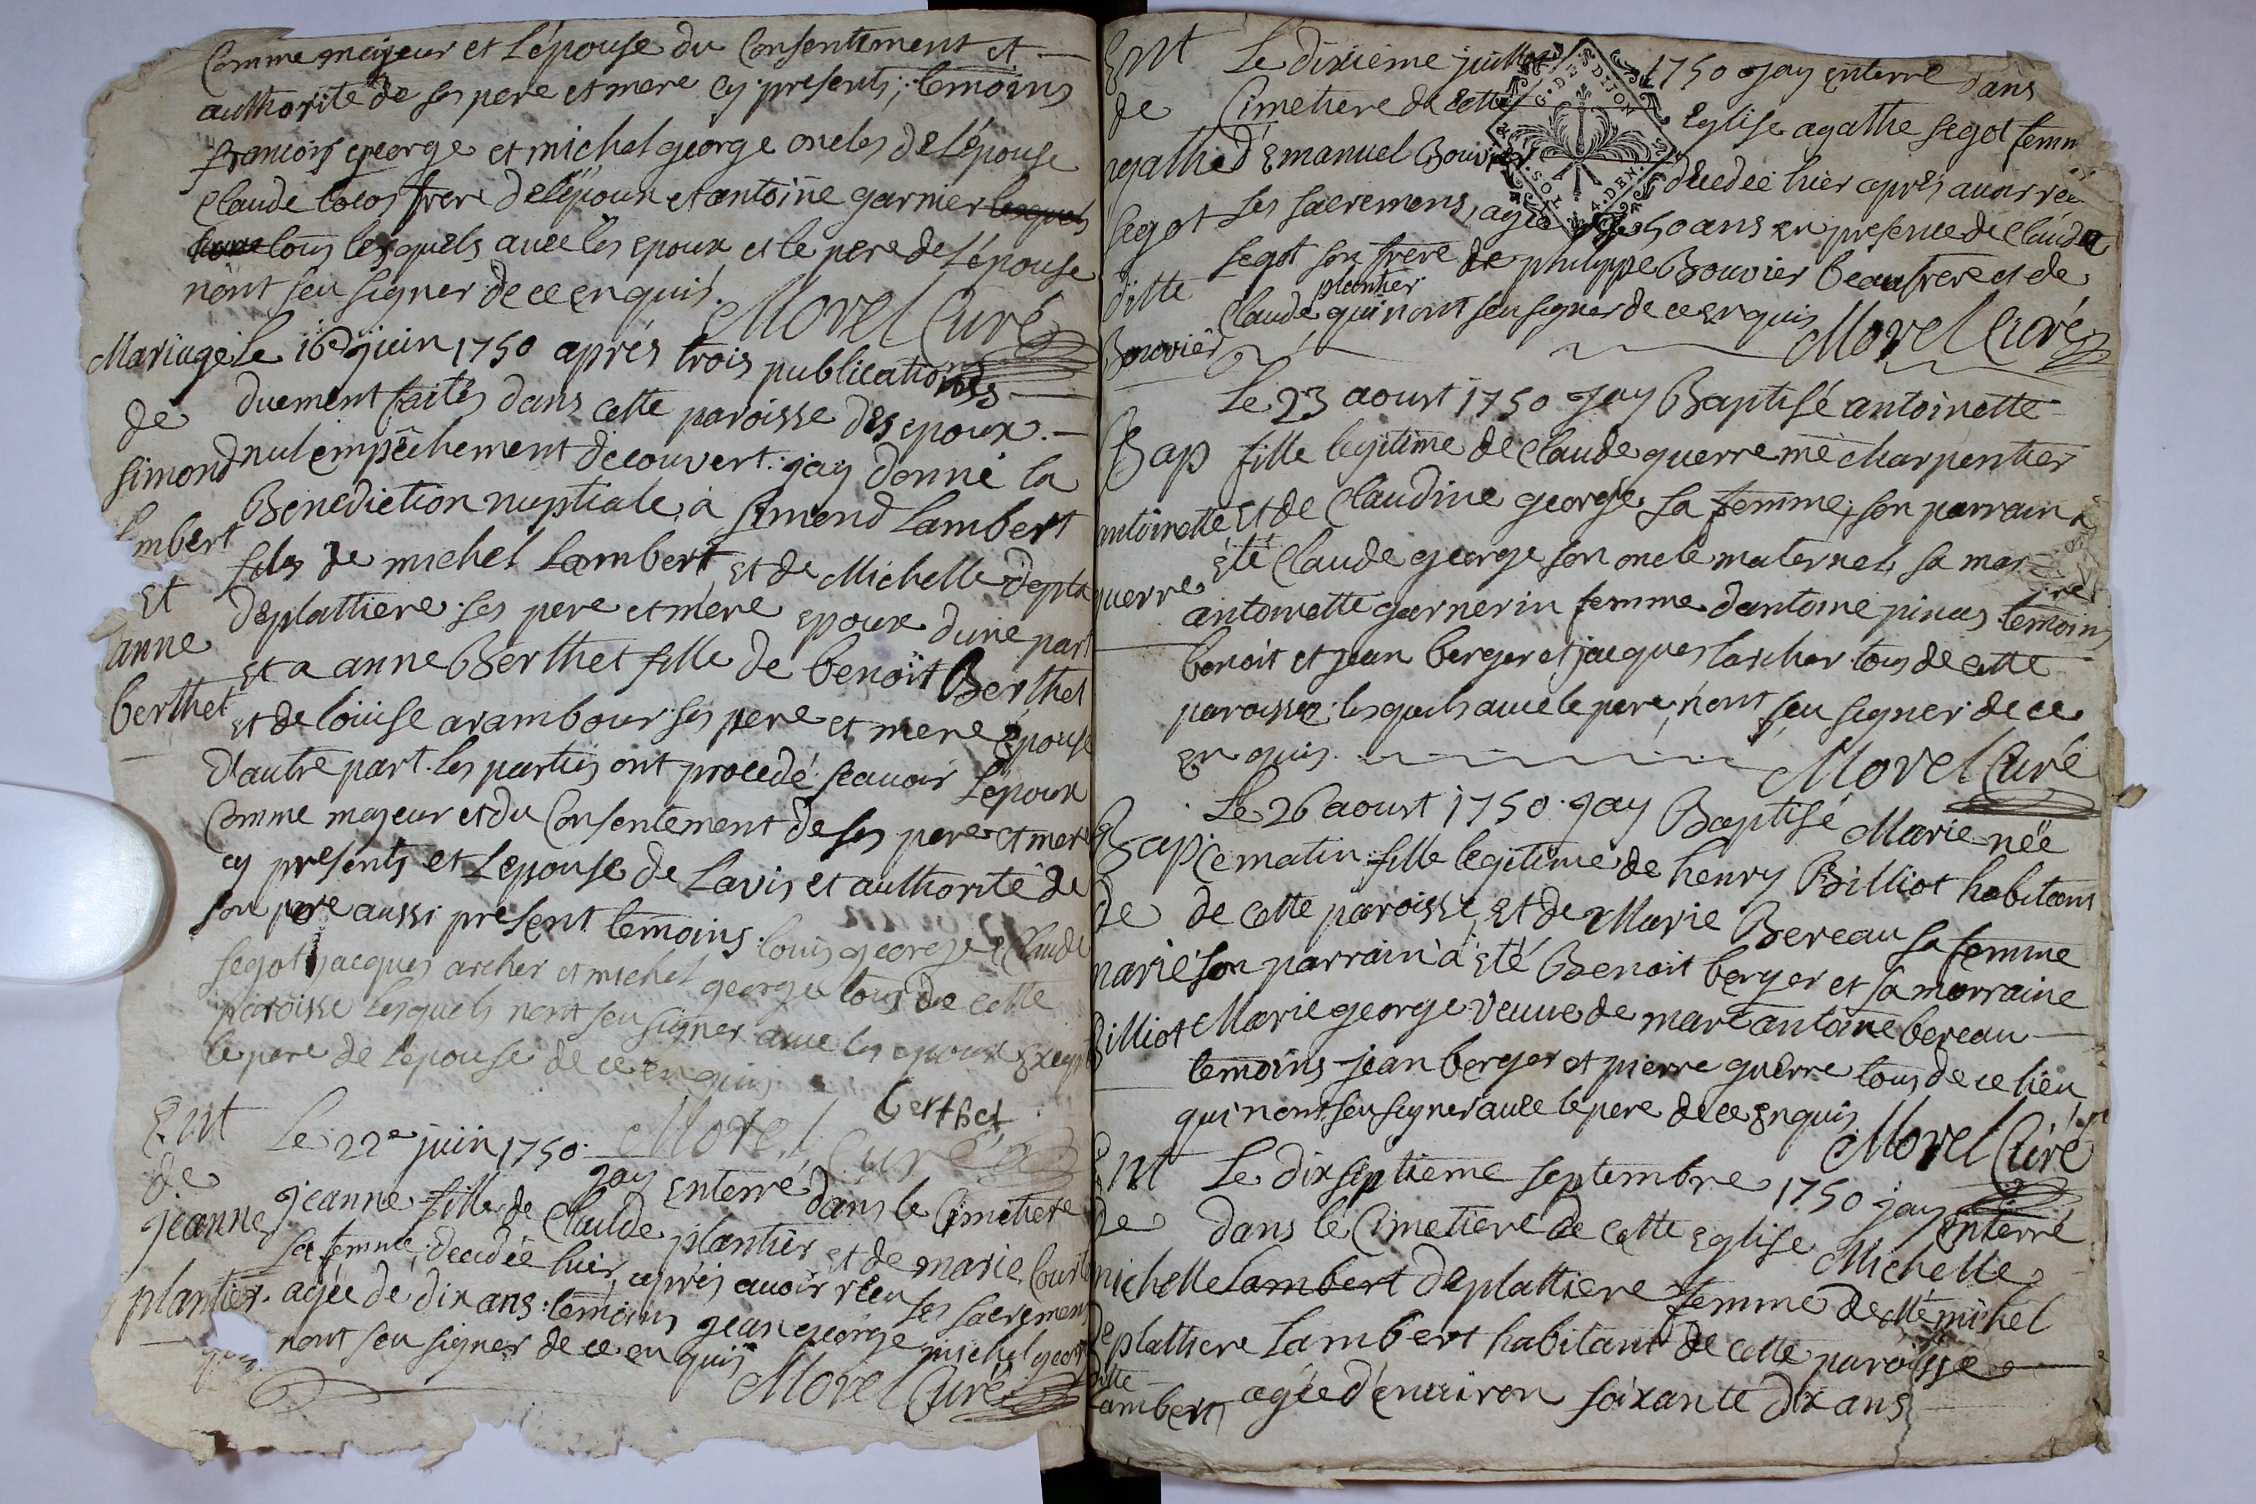 Comme majeur et L'épouse du Consentement et
authorité de ses pere et mere cy presents; temoins
francois george et michel george oncles de L'épouse
Claude colos frere de L'époux et antoine garnier lesquels
tous lesquels avec les epoux et le pere de L'épouse
n'ont seu signer de ce enquis.
Morel Curé
Mariage
de
simond
lambert
et
anne
berthet
Le 16e juin 1750 aprés trois publications
duement faites dans cette paroisse des epoux
nul empêchement decouvert. jay donné la
Benediction nuptiale à simond Lambert
fils de michel Lambert et de Michelle depla
deplattiere ses pere et mere epoux dune part
et a anne Berthet fille de benoit Berthet
et de loüise arambour ses pere et mere epouse
d'autre part. les parties ont procedé scavoir L'epoux
Comme majeur et du Consentement de ses pere et mere
cy presents et Lepouse de Lavis et authorité de
son pere aussi present temoins. louis george Claude
segot jacques archer et michel george tous de cette
paroisse lesquels n'ont seu signer avec les epoux Except
le pere de l'epouse de ce enquis
berthet
Morel Curé
Ent
de
jeanne
plantier.
Le 22e juin 1750. jay Enterré dans le Cimetiere
jeanne fille de Claude plantier et de marie Court
sa femme, decedée hier, aprés avoir rêcu les sacremens
agée de dix ans: temoins jean george michel george
n'ont seu signer de ce enquis
Morel Curé
Ent
de
agathe
segot
ditte
Bouvier
Le dixieme juillet 1750 jay enterré dans
Cimetiere de cette Eglise agathe segot femm
d'Emanuel Bouvier décedée hier aprés avoir rêcu
Les sacremens, agée de 50 ans en presence de Claude
segot son frere de philippe Bouvier beaufrere et de
Claude plantier qui n'ont seu signer de ce enquis
Morel Curé
G. D. DIJON
SOL. 4. DEN.
Bap
antoinette
guerre
Le 23 aoust 1750 jay Baptisé antoinette
fille legitime de Claude guerre me charpentier
et de Claudine george sa femme, son parrain a
été Claude george son oncle maternel, sa mar
raine
antoinette garnerin femme dantoine pinas temoins
benoit et jean berger et jacques larcher tous de cette
paroisse lesquels avec le pere n'ont seu signer de ce
enquis.
Morel Curé
Bap
de
marie
Billiot
Le 26 aoust 1750. jay Baptisé Marie née
ce matin fille legitime de henry Billiot habitant
de cette paroisse, et de Marie Bereau sa femme
son parrain à été Benoit berger et sa marraine
Marie george Veuve de marc antoine bereau
temoins jean berger et pierre guerre tous de ce lieu
qui n'ont seu signer avec le pere de ce enquis
Morel Curé
Ent
de
michelle
deplattiere
ditte
Lambert
Le dixseptieme septembre 1750 jay enterré
dans le Cimetiere de cette Eglise Michelle
Lambert deplattiere femme de Me michel
Lambert habitant de cette paroisse
agée d'environ soixante dix ans